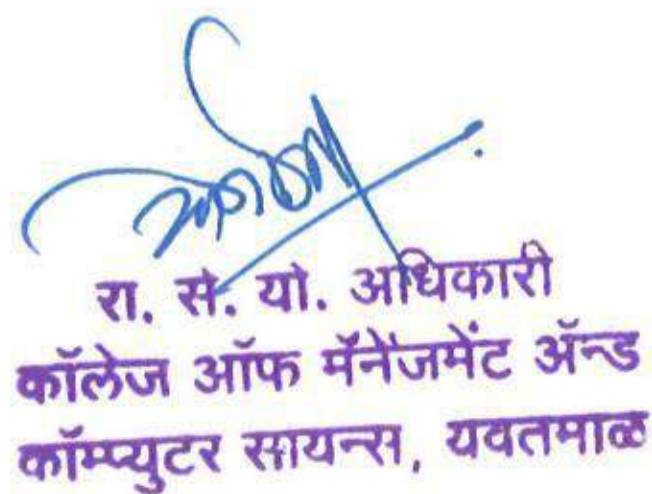 रा. से. यो. अधिकारी
कॉलेज ऑफ मॅनेजमेंट ॲन्ड
कॉम्प्युटर सायन्स, यवतमाळ